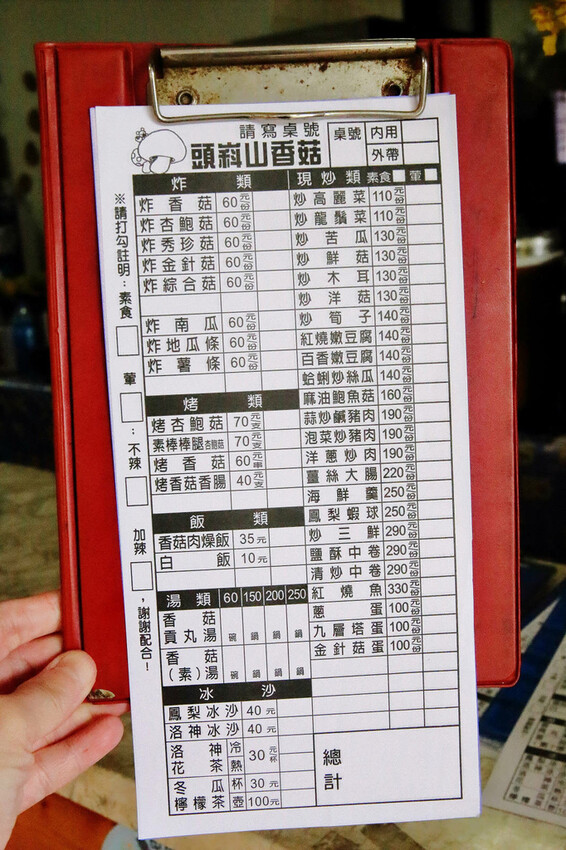 請寫桌號
頭嵙山香菇
桌號
內用
外帶
※請打勾註明：素食 葷 ：不辣 加辣 ，謝謝配合！
炸類
炸香菇 60元份
炸杏鮑菇 60元份
炸秀珍菇 60元份
炸金針菇 60元份
炸綜合菇 60元份
炸南瓜 60元份
炸地瓜條 60元份
炸薯條 60元份
烤類
烤杏鮑菇 70元支
素棒棒腿杏鮑菇 70元支
烤香菇 60元串
烤香菇香腸 40元支
飯類
香菇肉燥飯 35元
白飯 10元
湯類 60 150 200 250
香菇貢丸湯 碗 鍋 鍋 鍋
香菇（素）湯 碗 鍋 鍋 鍋
冰沙
鳳梨冰沙 40元
洛神冰沙 40元
洛神花茶 冷 熱 30元杯
冬瓜檸檬茶 杯 30元
壺 100元
現炒類 素食 葷
炒高麗菜 110元份
炒龍鬚菜 110元份
炒苦瓜 130元份
炒鮮菇 130元份
炒木耳 130元份
炒洋菇 130元份
炒筍子 140元份
紅燒嫩豆腐 140元份
百香嫩豆腐 140元份
蛤蜊炒絲瓜 140元份
麻油鮑魚菇 160元份
蒜炒鹹豬肉 190元份
泡菜炒豬肉 190元份
洋蔥炒肉 190元份
薑絲大腸 220元份
海鮮羹 250元份
鳳梨蝦球 250元份
炒三鮮 290元份
鹽酥中卷 290元份
清炒中卷 290元份
紅燒魚 330元份
蔥蛋 100元份
九層塔蛋 100元份
金針菇蛋 100元份
總計